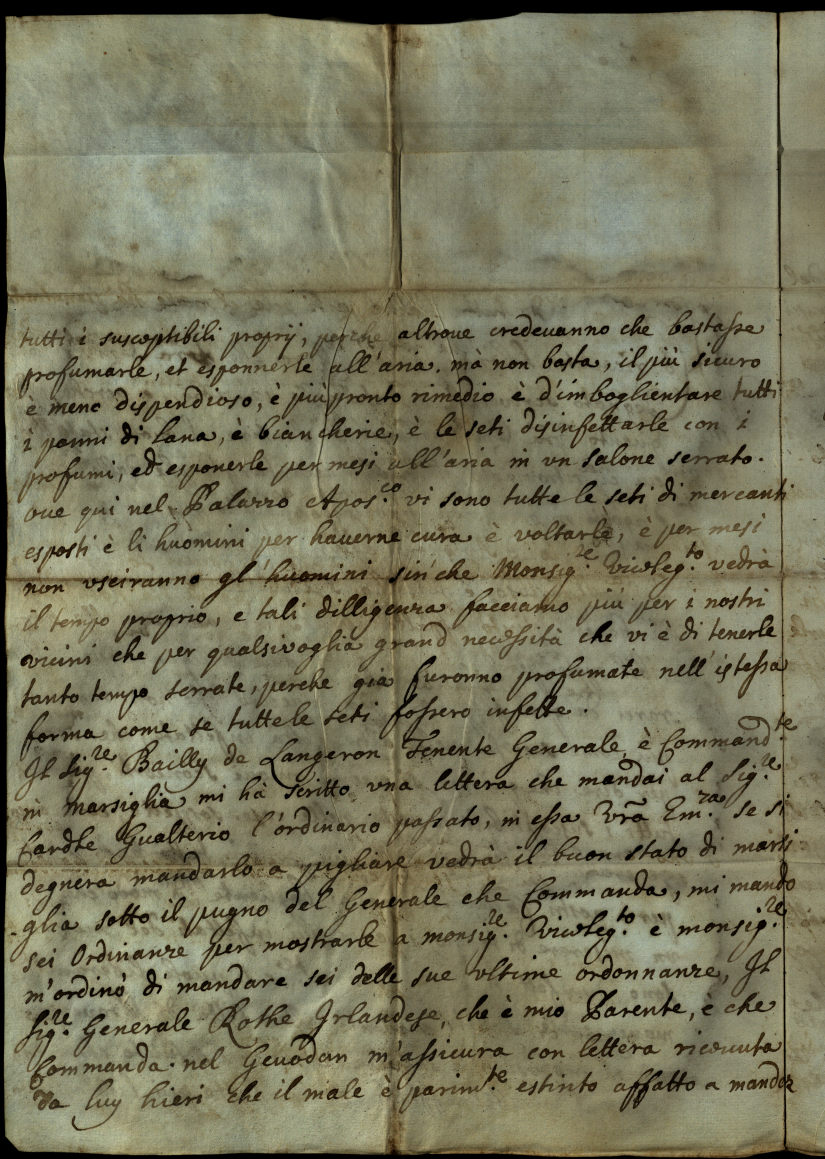 tutti i susceptibili proprij, perche altroue credeuanno che bastasse
profumarle, et esponnerle all'aria. mà non basta, il più sicuro
è meno dispendioso, è più pronto rimedio è d'imboglientare tutti
i panni di Lana, è biancherie, è le seti disinfettarle con i
profumi, ed esponerle per mesi all'aria in vn salone serrato.
oue qui nel Palazzo Apos.co vi sono tutte le seti di mercanti
esposti è li huomini per hauerne cura è voltarle, è per mesi
non vsciranno gl'huomini sin'che Monsig.re Viceleg.to vedrà
il tempo proprio, e tali dilligenza facciamo più per i nostri
vicini che per qualsivoglia grand necessità che vi è di tenerle
tanto tempo serrate, perche già furonno profumate nell'istessa
forma come se tutte le seti fossero infette.
Il Sig.re Bailly de Langeron Tenente Generale è Command.te
in marsiglia mi hà scritto vna lettera che mandai al Sig.re
Cardle Gualterio l'ordinario passato, in essa Vrã Em.za se si
degnera mandarlo a pigliare vedrà il buon stato di marsi
-glia sotto il pugno del Generale che Commanda, mi mando
sei Ordinanze per mostrarle a monsig.re Viceleg.to è monsig.re
m'ordinò di mandare sei delle sue vltime ordonnanze, Il
Sig.re Generale Rothe Irlandese, che è mio Parente, è che
Commanda nel Gevõdan m'assicura con lettera riceuuta
da luy hieri che il male è parim.te estinto affatto a mandez